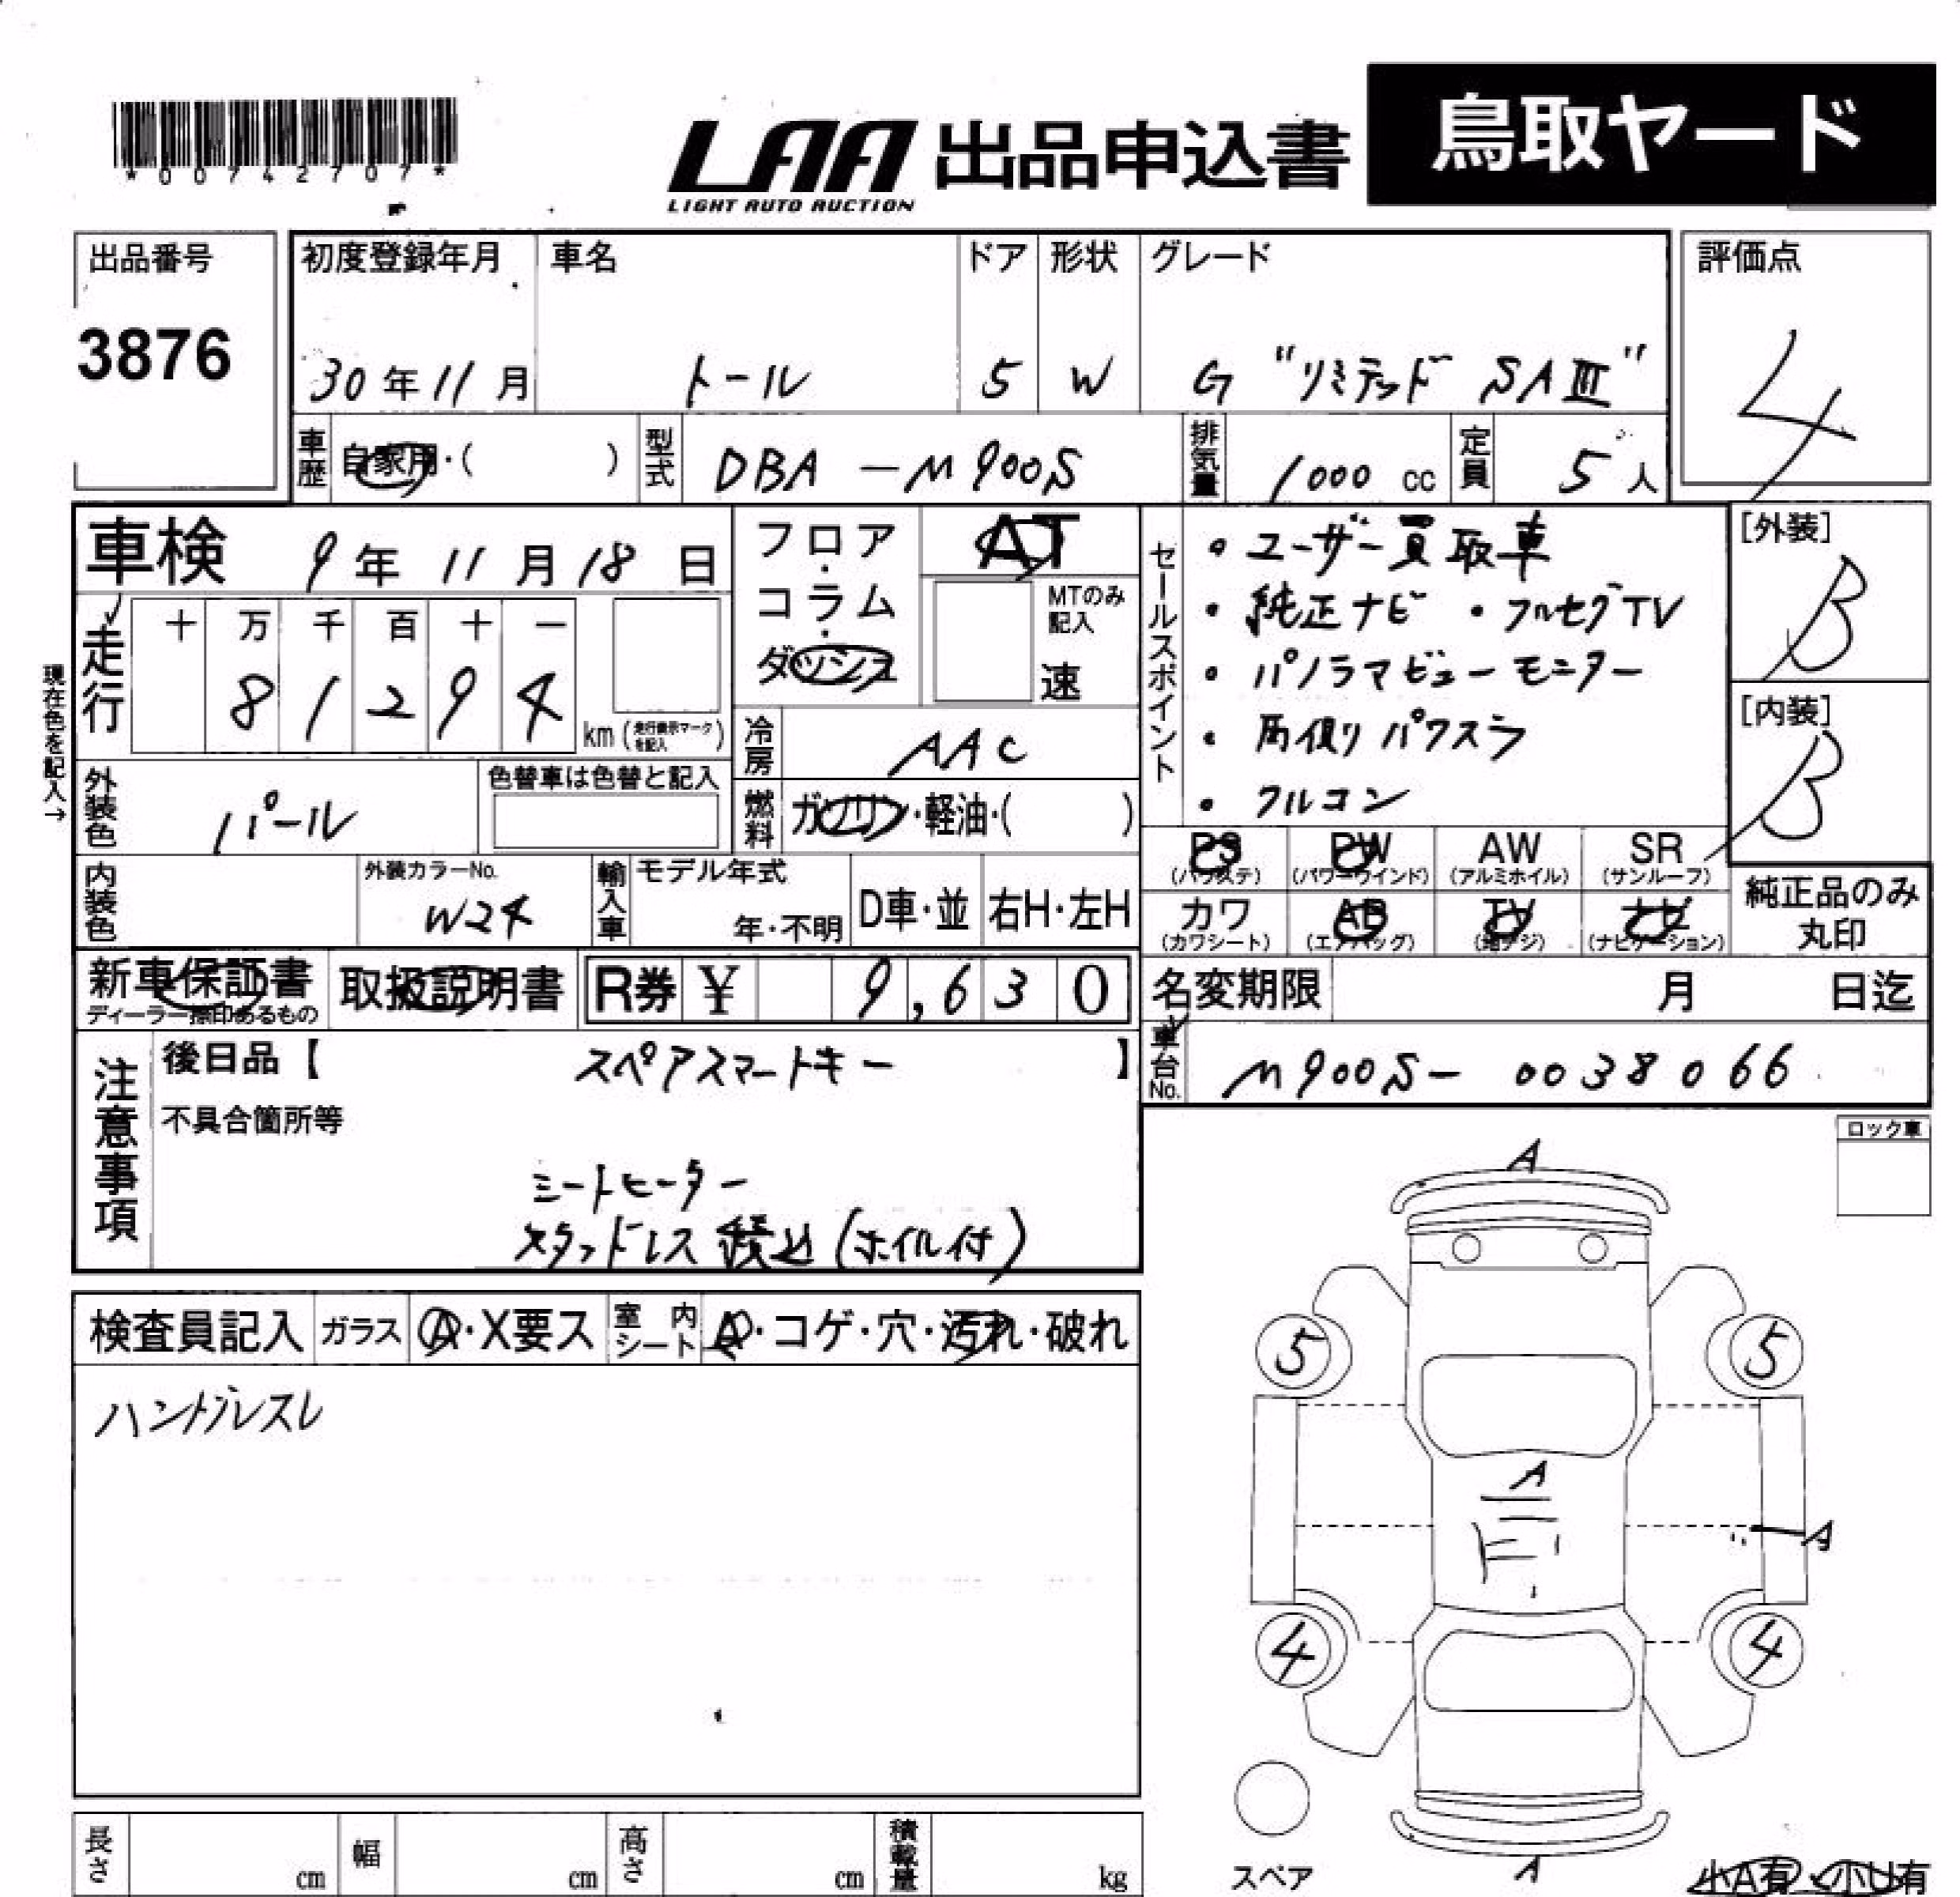 *00742707*
LAA 出品申込書 鳥取ヤード
LIGHT AUTO AUCTION
出品番号 初度登録年月 車名 ドア 形状 グレード 評価点
3876 30年11月 トール 5 W G "リミテッド SAⅢ" 4
車歴 自家用・( ) 型式 DBA-M900S 排気量 1000cc 定員 5人
車検 9年11月18日
フロア・コラム・ダッシュ AT
MTのみ記入 速
現在色を記入→
走行 十 万 千 百 十 一
8 1 2 9 4 km (走行表示マークを記入)
冷房 AAC
外装色 パール 色替車は色替と記入
燃料 ガソリン・軽油・( )
内装色 外装カラーNo. W24 輸入車 モデル年式 年・不明 D車・並 右H・左H
セールスポイント
・ユーザー買取車
・純正ナビ ・フルセグTV
・パノラマビューモニター
・両側パワスラ
・フルコン
[外装] B
[内装] B
PS (パワステ) PW (パワーウインド) AW (アルミホイル) SR (サンルーフ)
カワ (カワシート) AB (エアバッグ) TV (地デジ) ナビ (ナビゲーション)
純正品のみ丸印
新車保証書 ディーラー捺印あるもの 取扱説明書 R券 ¥ 9,630
名変期限 月 日迄
車台No. M900S-0038066
注意事項
後日品【 スペアスマートキー 】
不具合箇所等
シートヒーター
スタッドレス積込(ホイル付)
検査員記入 ガラス A・X要ス 室内シート A・コゲ・穴・汚れ・破れ
ハンドルスレ
ロック車
A
5 5
A
A
4 4
A
スペア
小A有・小U有
長さ cm 幅 cm 高さ cm 積載量 kg